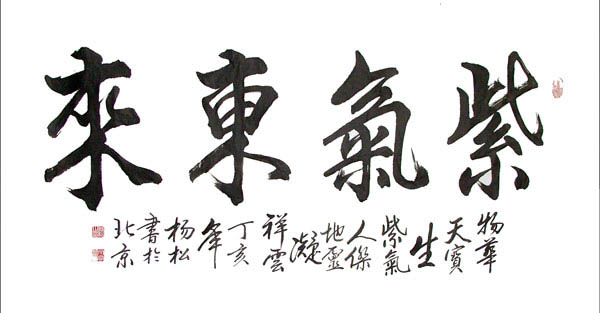 紫氣東來
物華
天寶
生
紫氣
人傑
地靈
凝
祥雲
丁亥
年
杨松
書於
北京